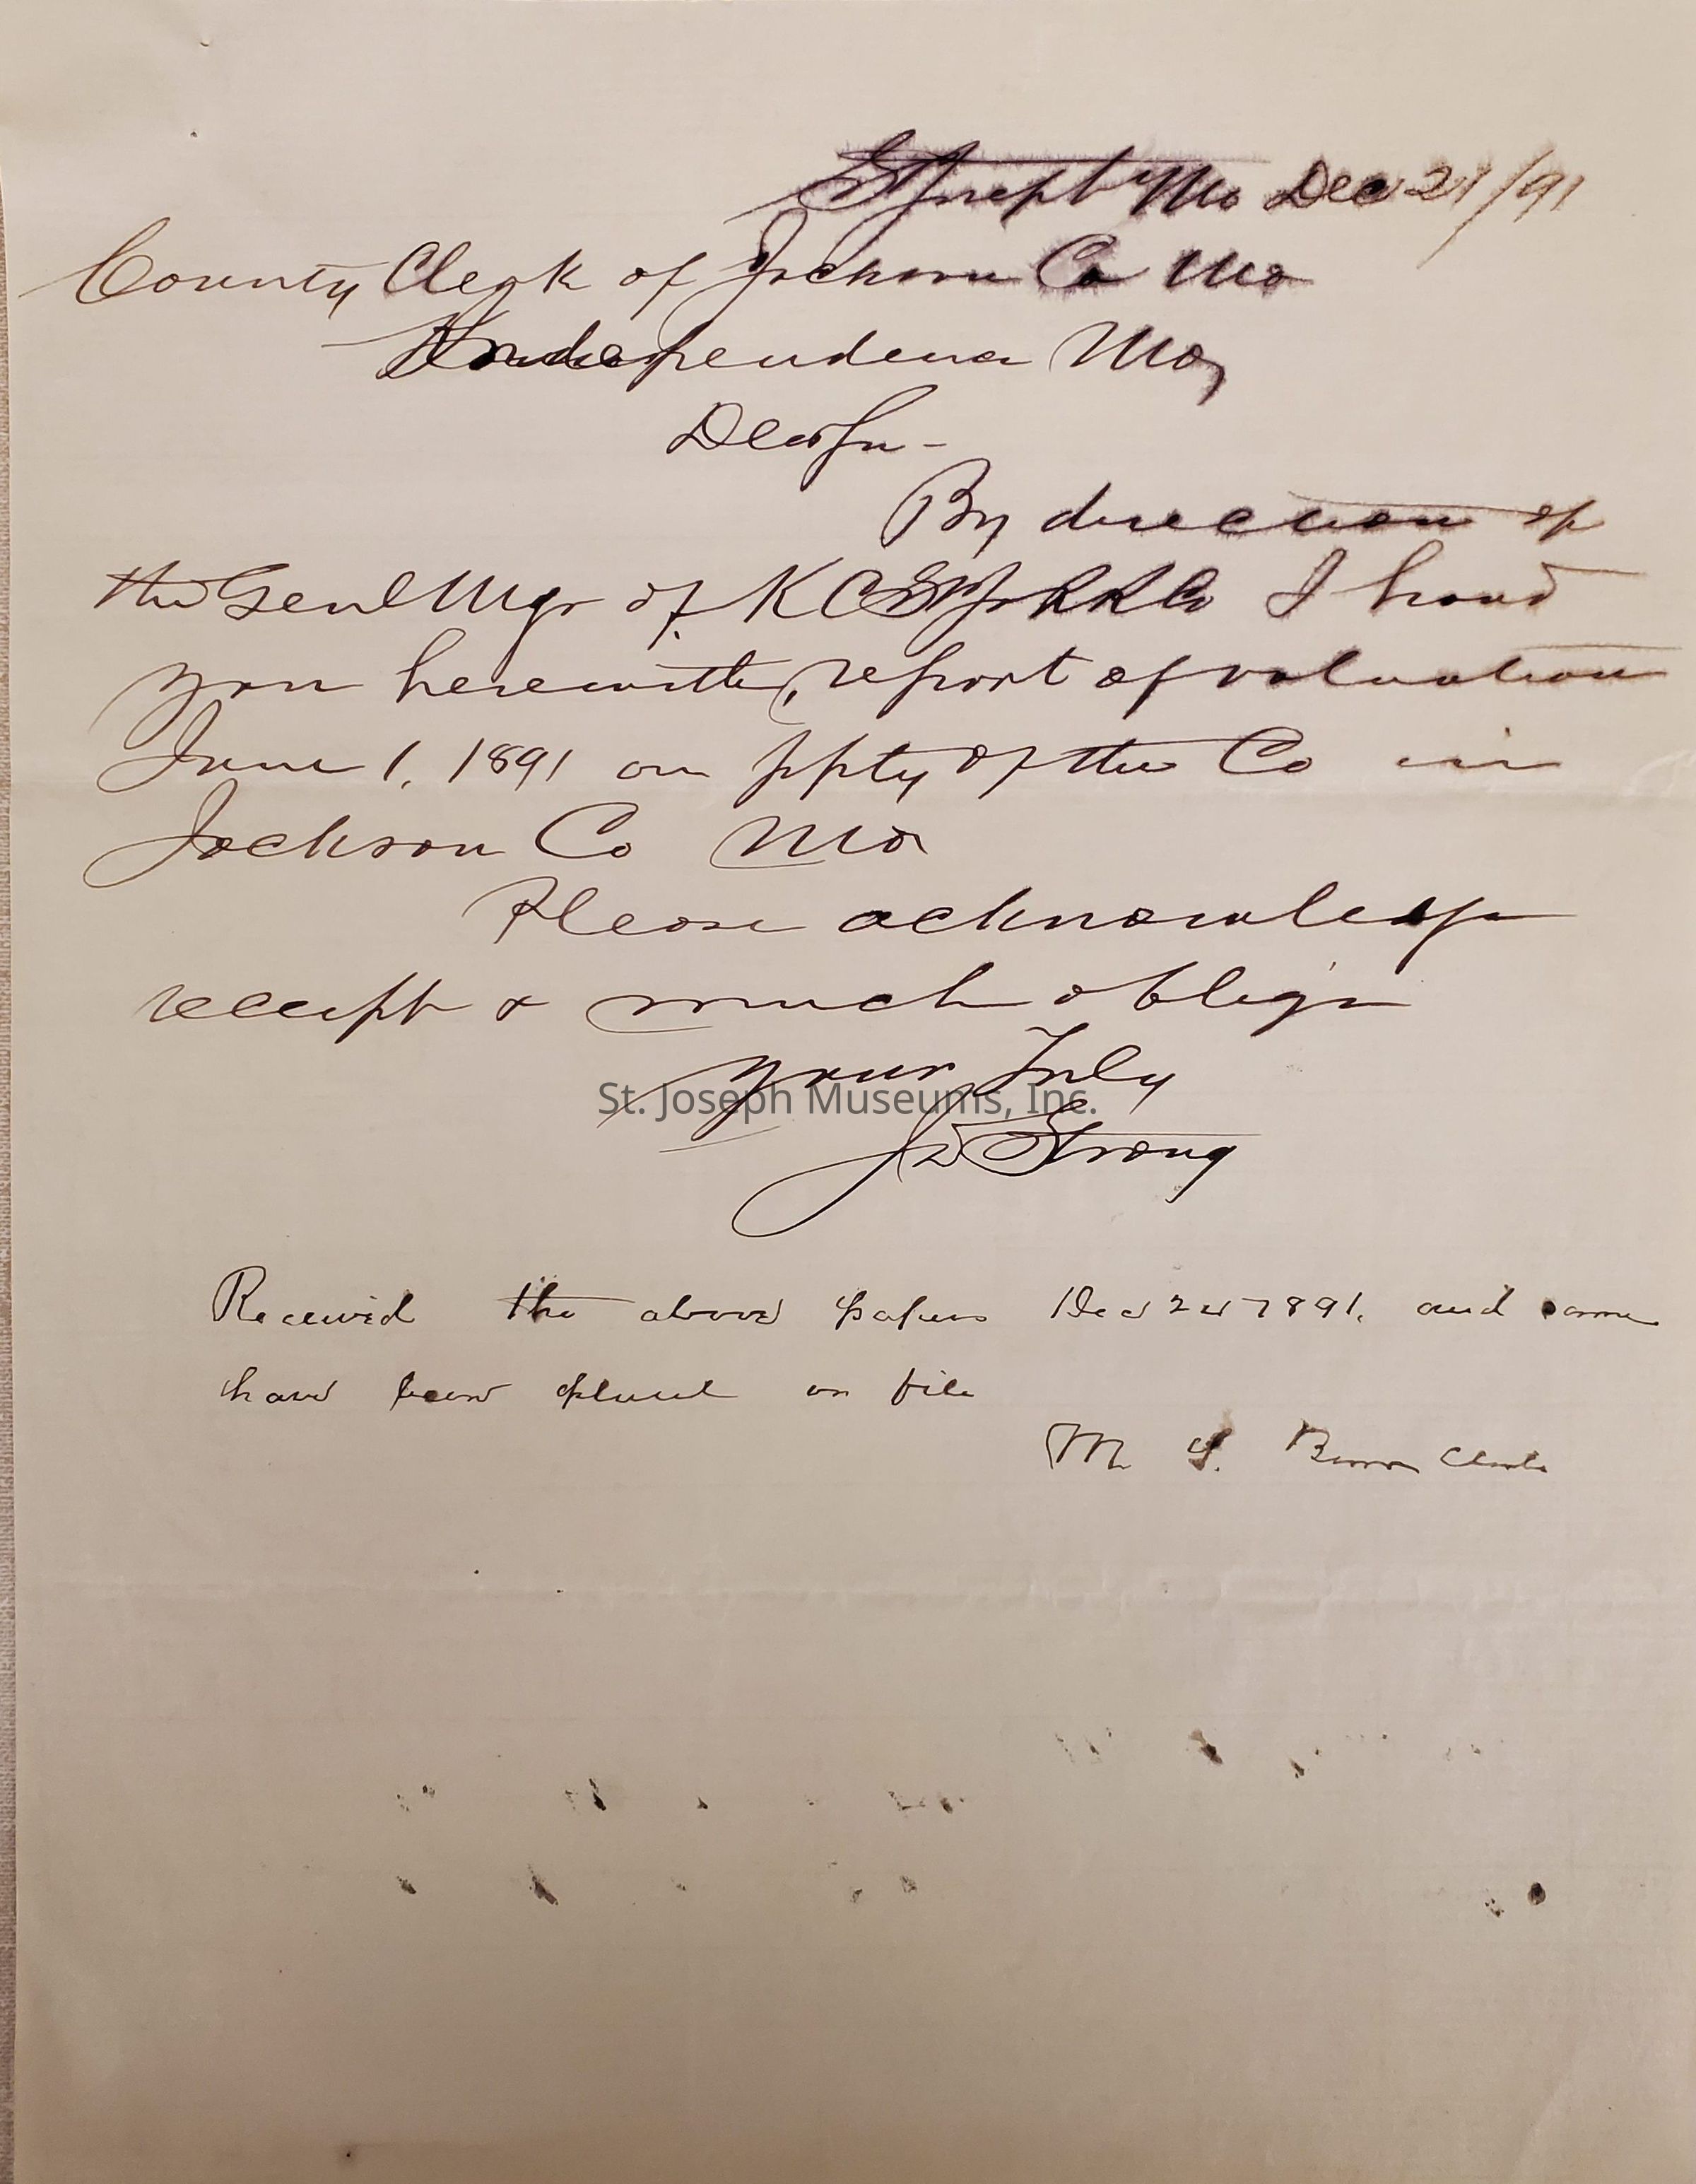 St Joseph Mo Dec 21/91
County Clerk of Jackson Co Mo
Independence Mo,
Dear Sir -
By direction of
the Genl Mgr of K C St J & RR Co I hand
you herewith, report of valuation
June 1, 1891 on ppty of the Co in
Jackson Co Mo
Please acknowledge
receipt & much oblige
Yours Truly
St. Joseph Museums, Inc.
Strong
Received the above papers Dec 24 1891. and same
have been placed on file
M S. Burr Clerk